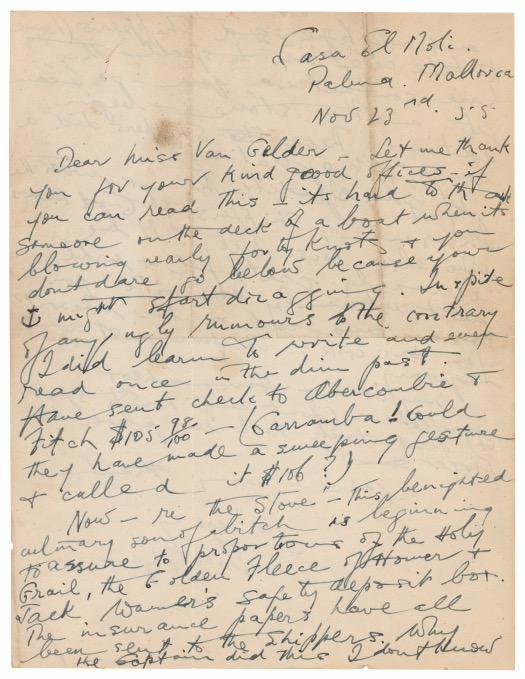 Casa El Moli.
Palma. Mallorca
Nov 23rd. 55
Dear Miss Van Gelder - Let me thank
you for your kind goood offices - if
you can read this - its hard to thank
someone on the deck of a boat when its
blowing nearly forty knots & you
dont dare go below because your
⚓ might start dragging. Inspite
of any ugly rumours to the contrary
I did learn to write and even
read once in the dim past.
Have sent check to Abercombie &
Fitch $105 98/100 - (Carramba! Could
they have made a sweeping gesture
& called it $106?)
Now - re the Stove - this benighted
culinary son of a bitch is beginning
to assure to proportions of the Holy
Grail, the Golden Fleece of Homer &
Jack Warner's safety deposit box.
The insurance papers have all
been sent to the shippers. Why
the Captain did this I dont know